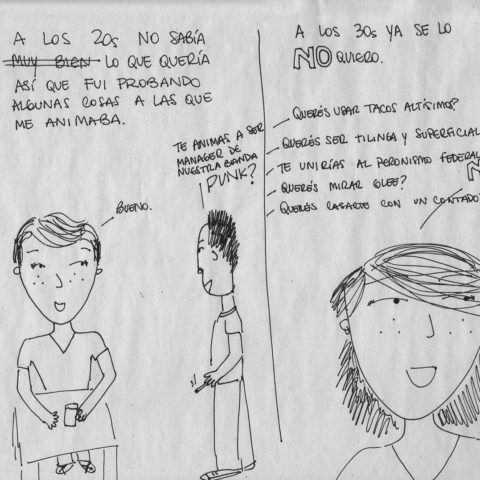 A LOS 20s NO SABÍA
MUY BIEN LO QUE QUERÍA
ASÍ QUE FUI PROBANDO
ALGUNAS COSAS A LAS QUE
ME ANIMABA.
TE ANIMAS A SER
MANAGER DE
NUESTRA BANDA
PUNK?
BUENO.
A LOS 30s YA SE LO
NO QUIERO.
QUERÉS USAR TACOS ALTÍSIMOS?
QUERÉS SER TILINGA Y SUPERFICIAL
TE UNIRÍAS AL PERONISMO FEDERAL
QUERÉS MIRAR GLEE?
QUERÉS CASARTE CON UN CONTADO
N